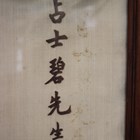 占士碧先生